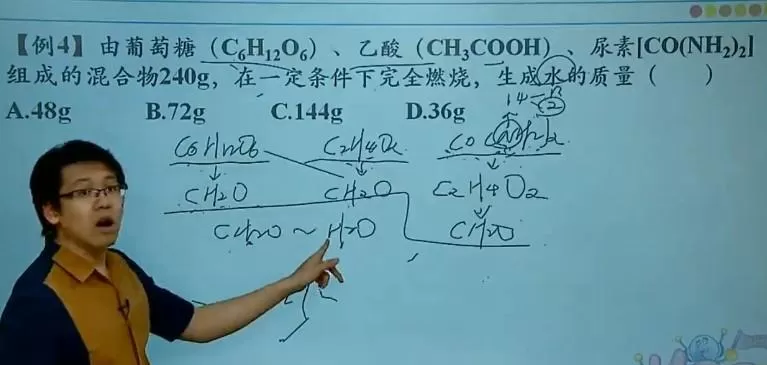 【例4】由葡萄糖（C₆H₁₂O₆）、乙酸（CH₃COOH）、尿素[CO(NH₂)₂]
组成的混合物240g，在一定条件下完全燃烧，生成水的质量（ ）
A.48g B.72g C.144g D.36g
14 2
C6H12O6 C2H4O2 CO
CH2O CH2O C2H4O2
CH2O ~ H2O CH2O